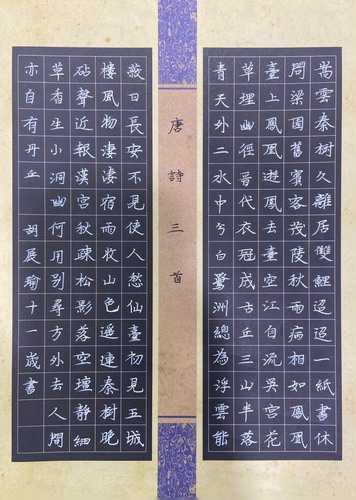 嵩雲秦樹久離居雙鯉迢迢一紙書休
問梁園舊賓客茂陵秋雨病相如鳳凰
臺上鳳凰遊鳳去臺空江自流吳宮花
草埋幽徑晉代衣冠成古丘三山半落
青天外二水中分白鷺洲總為浮雲能
唐詩三首
蔽日長安不見使人愁仙臺初見五城
樓風物淒淒宿雨收山色遙連秦樹晚
砧聲近報漢宮秋疎松影落空壇靜細
草香生小洞幽何用別尋方外去人間
亦自有丹丘 胡展瑜十一歲書